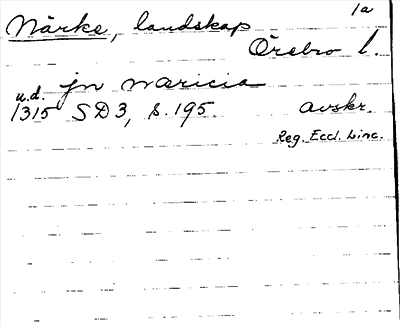 1a
Närke, landskap
Örebro l.
jn naricia
u.d.
1315 SD3, s. 195. avskr.
Reg. Eccl. Linc.